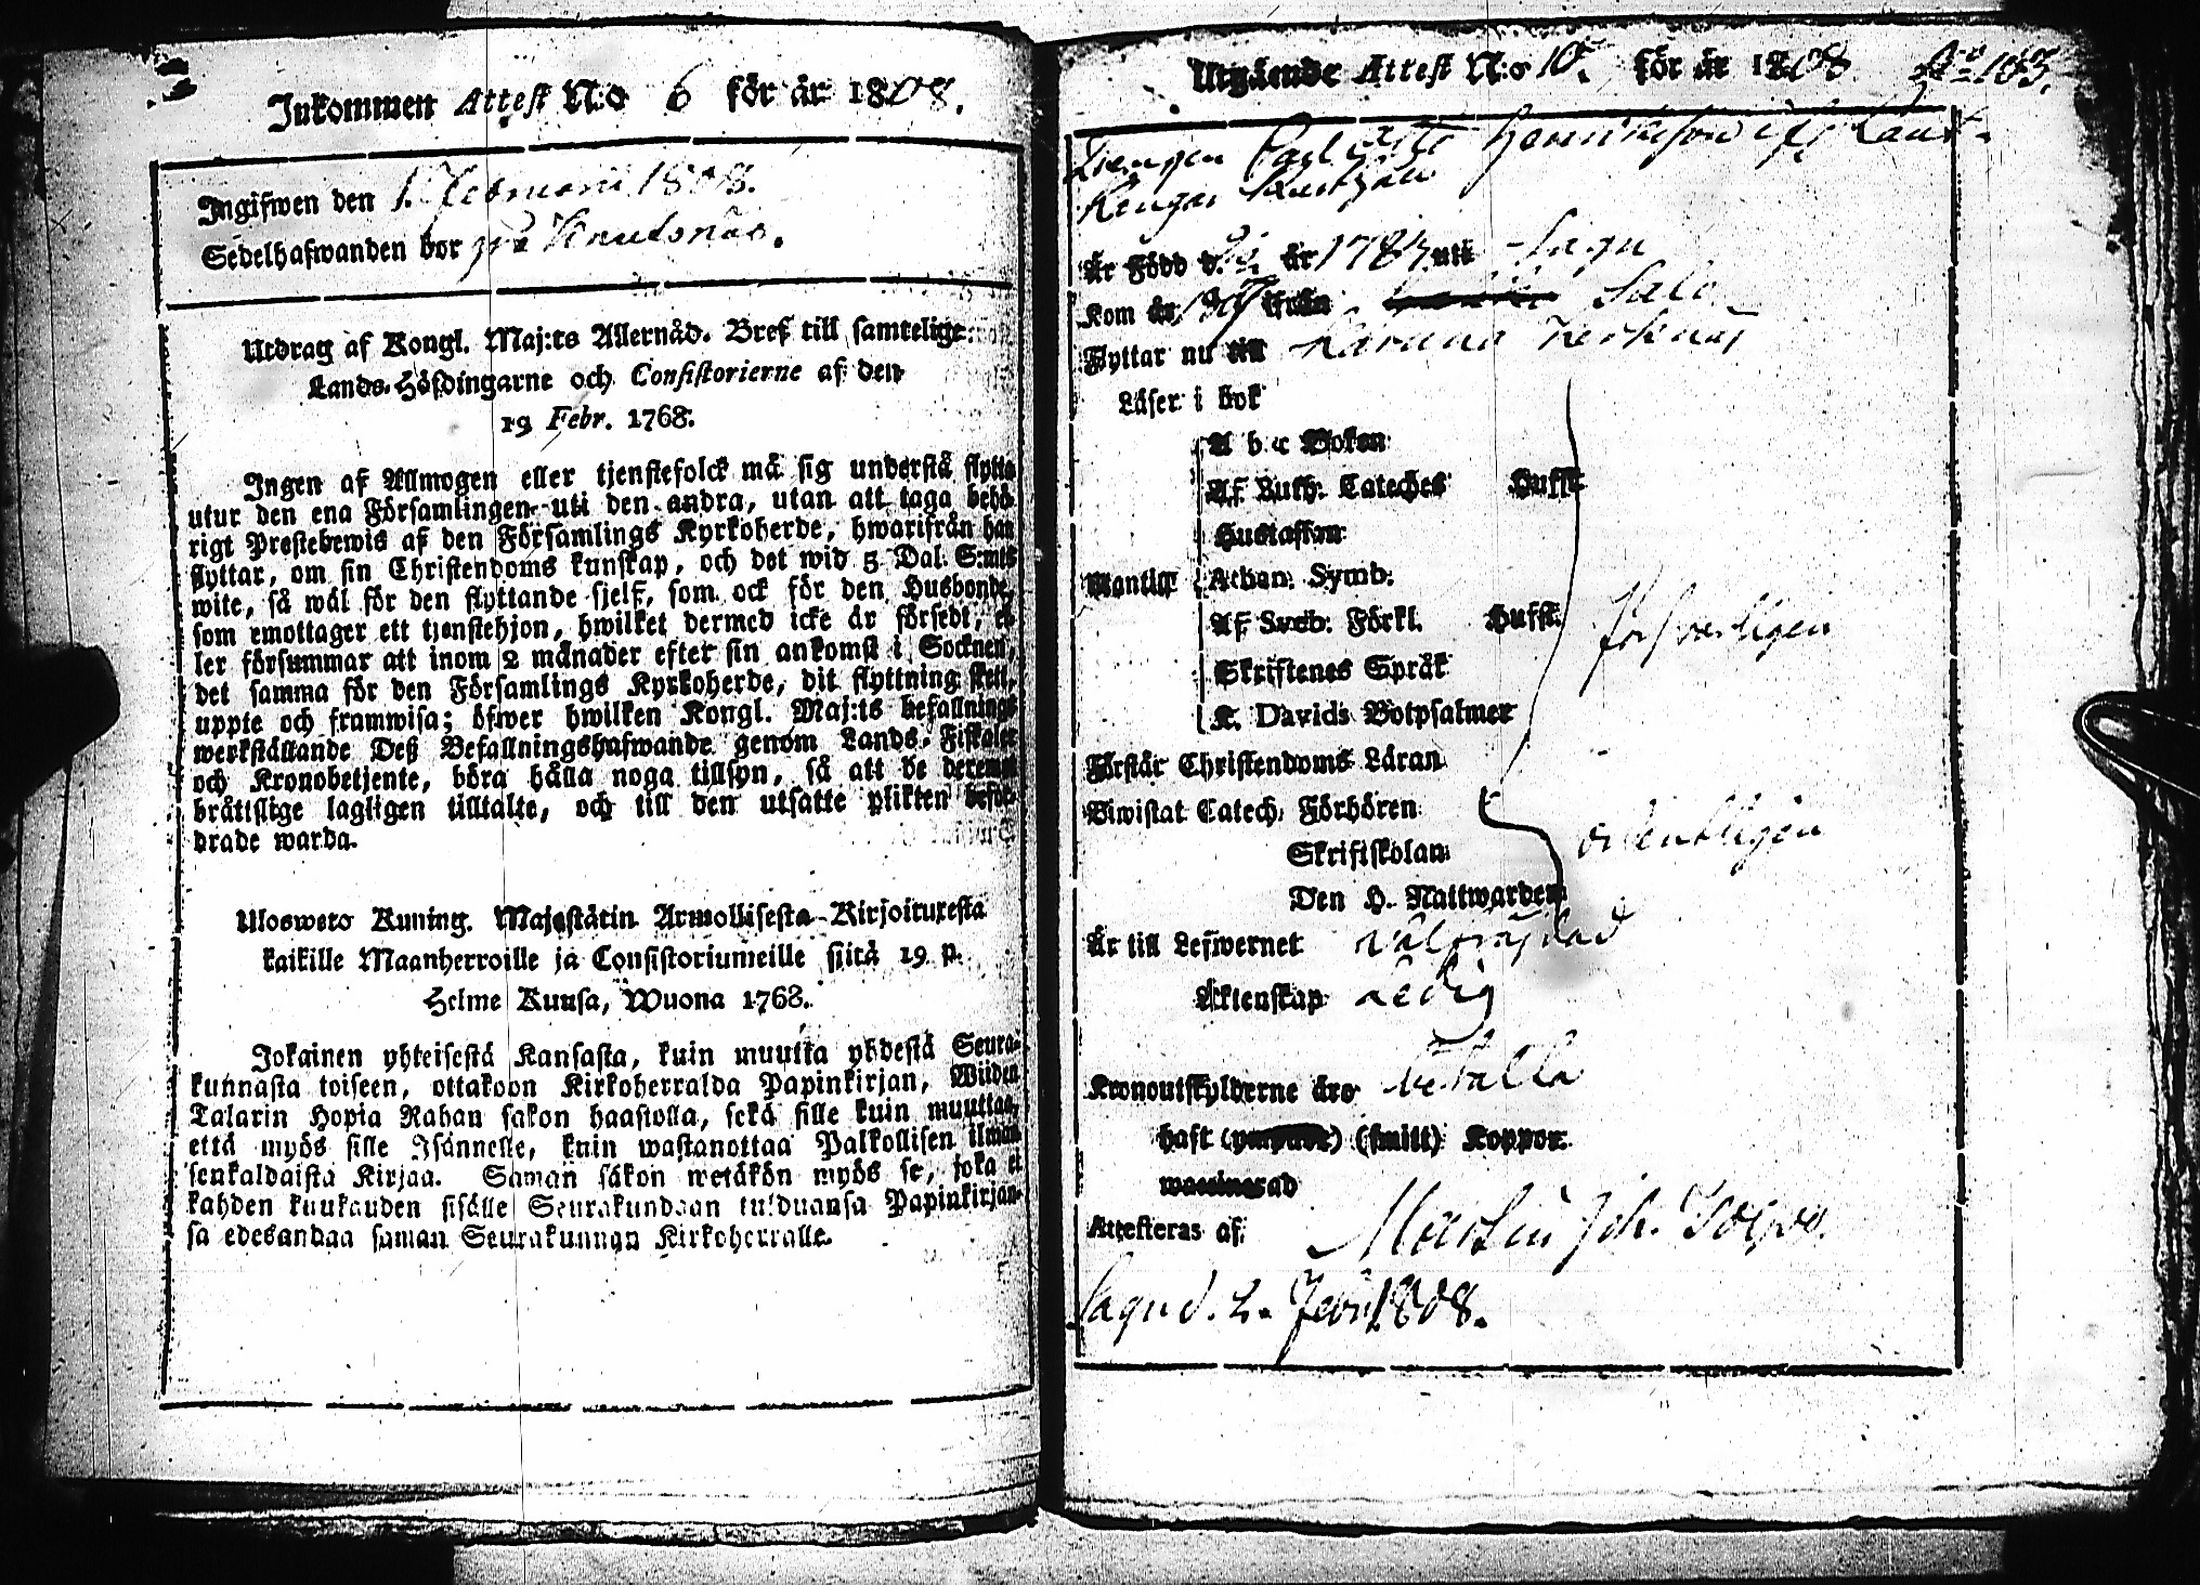 Inkommen Attest N:o 6 för år 1808.
Ingifwen den 1. Februarii 1808.
Sedelhafwanden bor på Knutsnäs.
Utdrag af Kongl. Maj:ts Allernåd. Bref till samtelige
Lands-Höfdingarne och Consistorierne af den
19 Febr. 1768.
Ingen af Allmogen eller tjenstefolck må sig understå flytta
utur den ena Församlingen uti den andra, utan att taga behö-
rigt Prestebewis af den Församlings Kyrkoherde, hwarifrån han
flyttar, om sin Christendoms kunskap, och det wid 5 Dal. S:mts
wite, så wäl för den flyttande sjelf, som ock för den Husbonde,
som emottager ett tjenstehjon, hwilket dermed icke är försedt, el-
ler försummar att inom 2 månader efter sin ankomst i Socknen,
det samma för den Församlings Kyrkoherde, dit flyttning skett,
uppte och framwisa; öfwer hwilken Kongl. Maj:ts befallnings
werkställande Deß Befallningshafwande genom Lands-Fiskaler
och Kronobetjente, böra hålla noga tillsyn, så att de deremot
bråttslige lagligen tilltalte, och till den utsatte plikten beför-
drade warda.
Uloswero Kuning. Majestätin Armollisesta Kirjoituxesta
kaikille Maanherroille ja Consistoriumeille siitä 19 p.
Helme Kuusa, Wuona 1768.
Jokainen yhteisestä Kansasta, kuin muutta yhdestä Seura-
kunnasta toiseen, ottakoon Kirkoherralda Papinkirjan, Wiiden
Talarin Hopia Rahan sakon haastolla, sekä sille kuin muuttaa,
että myös sille Isännelle, kuin wastanottaa Palkollisen ilman
senkaldaista Kirjaa. Saman sakon wetäkön myös se, joka ei
kahden kuukauden sisälle Seurakundaan tulduansa Papinkirjan-
sa edesandaa saman Seurakunnan Kirkoherralle.
Utgående Attest N:o 10. för år 1808 N:o 103.
Drengen Carl Henriksson
Är Född d. år 1784 uti Sagu
Kom år 1807 ifrån Salo
Flyttar nu till Karuna
Läser i bok
A b c Boken
Af Luth. Cateches Hufst.
Hustaflan
Wantill Athan. Symb.
Af Sveb. Förkl. Hufst. försvarligen
Skriftenes Språk
K. Davids Botpsalmer
Förstår Christendoms Läran
Biwistat Catech. Förhören ordentligen
Skriftskolan
Den H. Nattwarden
Är till Lefwernet välfräjdad
Äktenskap Ledig
Kronoutskylderne äro betalta
haft (smitt) Koppor.
waccinerad
Attesteras af Martin Joh. Tolpo.
Sagu d. 2. Febr. 1808.